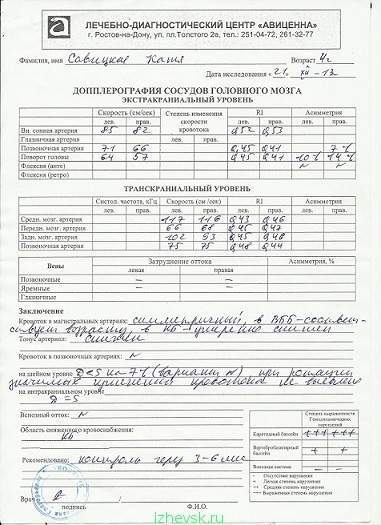 ЛЕЧЕБНО-ДИАГНОСТИЧЕСКИЙ ЦЕНТР «АВИЦЕННА»
г. Ростов-на-Дону, ул. пл.Толстого 2а, тел.: 251-04-72, 261-32-77
Фамилия, имя Савицкая Катя Возраст 4г
Дата исследования «21» XII -13
ДОППЛЕРОГРАФИЯ СОСУДОВ ГОЛОВНОГО МОЗГА
ЭКСТРАКРАНИАЛЬНЫЙ УРОВЕНЬ
Скорость (см/сек) Степень изменения скорости кровотока RI Асимметрия
лев. прав. лев. прав. лев. прав. лев. прав.
Вн. сонная артерия 85 82 0,52 0,53
Глазничная артерия
Позвоночная артерия 71 66 0,45 0,41 7%
Поворот головы 64 57 0,45 0,41 10% 14%
Флексия (анте) N N
Флексия (ретро)
ТРАНСКРАНИАЛЬНЫЙ УРОВЕНЬ
Систол. частота, кГц Скорость (см/сек) RI Асимметрия
лев. прав. лев. прав. лев. прав. лев. прав.
Средн. мозг. артерия 117 116 0,43 0,46
Передн. мозг. артерия 66 68 0,45 0,47
Задн. мозг. артерия 102 93 0,45 0,48
Позвоночная артерия 75 75 0,48 0,44
Вены Затруднение оттока Асимметрия, %
левая правая
Позвоночные – –
Яремные – –
Глазничные
Заключение
Кровоток в магистральных артериях: симметричный, в ВББ - соответ-
ствует возрасту, в КБ - умеренно снижен
Тонус артерий: снижен
Кровоток в позвоночных артериях: N
на шейном уровне D<S на 7% (вариант N) при ротации
значимых изменений кровотока не выявлено
на интракраниальном уровне
D = S
Венозный отток: N
Область сниженного кровоснабжения:
КБ
Рекомендовано: контроль через 3-6 мес
Врач
подпись Ф.И.О.
Степень выраженности
Каротидный бассейн
+ +
Венозная система – –
- Отсутствие
+ Легкая степень нарушения
++ Средняя степень нарушения
+++ Выраженная степень нарушения
izhevsk.ru